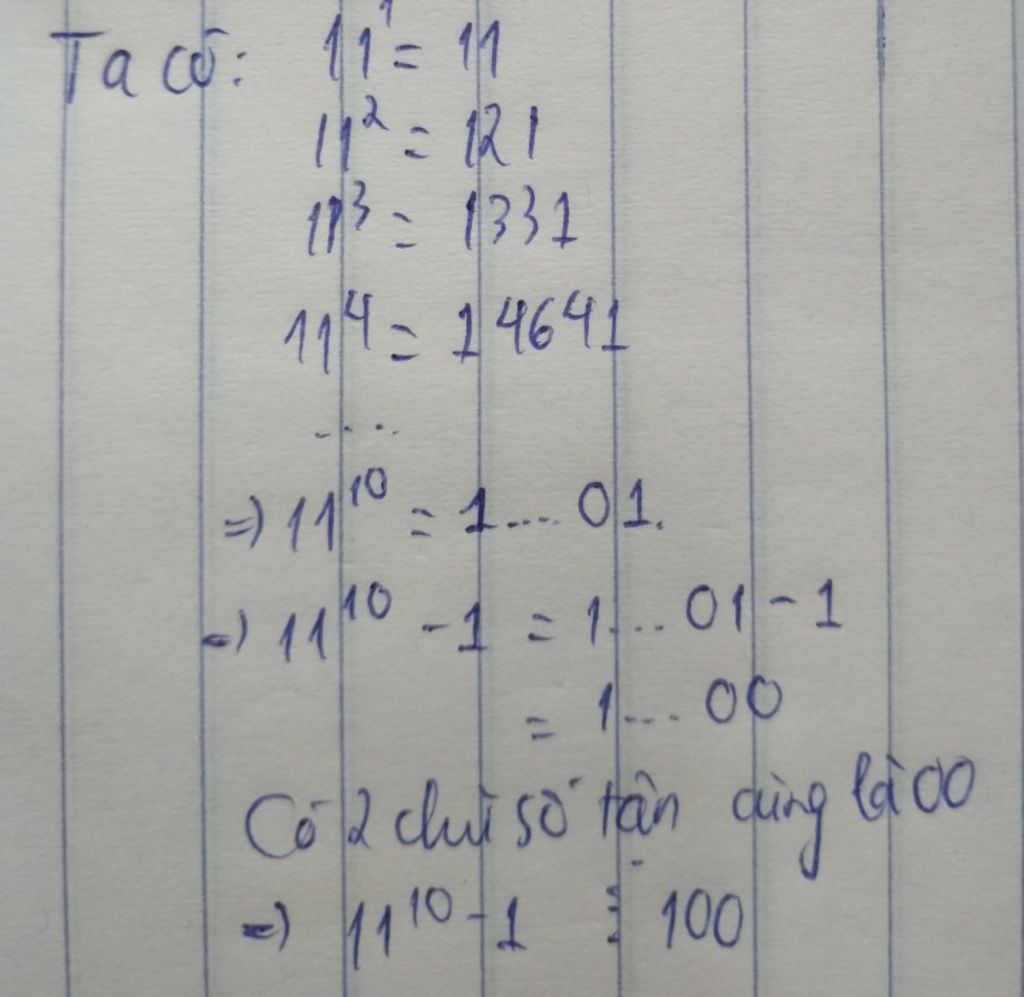 Ta có: 11¹ = 11
11² = 121
11³ = 1331
11⁴ = 14641
....
=) 11¹⁰ = 1.... 01.
=) 11¹⁰ - 1 = 1.... 01 - 1
= 1.... 00
Có 2 chữ số tận cùng là 00
=) 11¹⁰ - 1 ⋮ 100